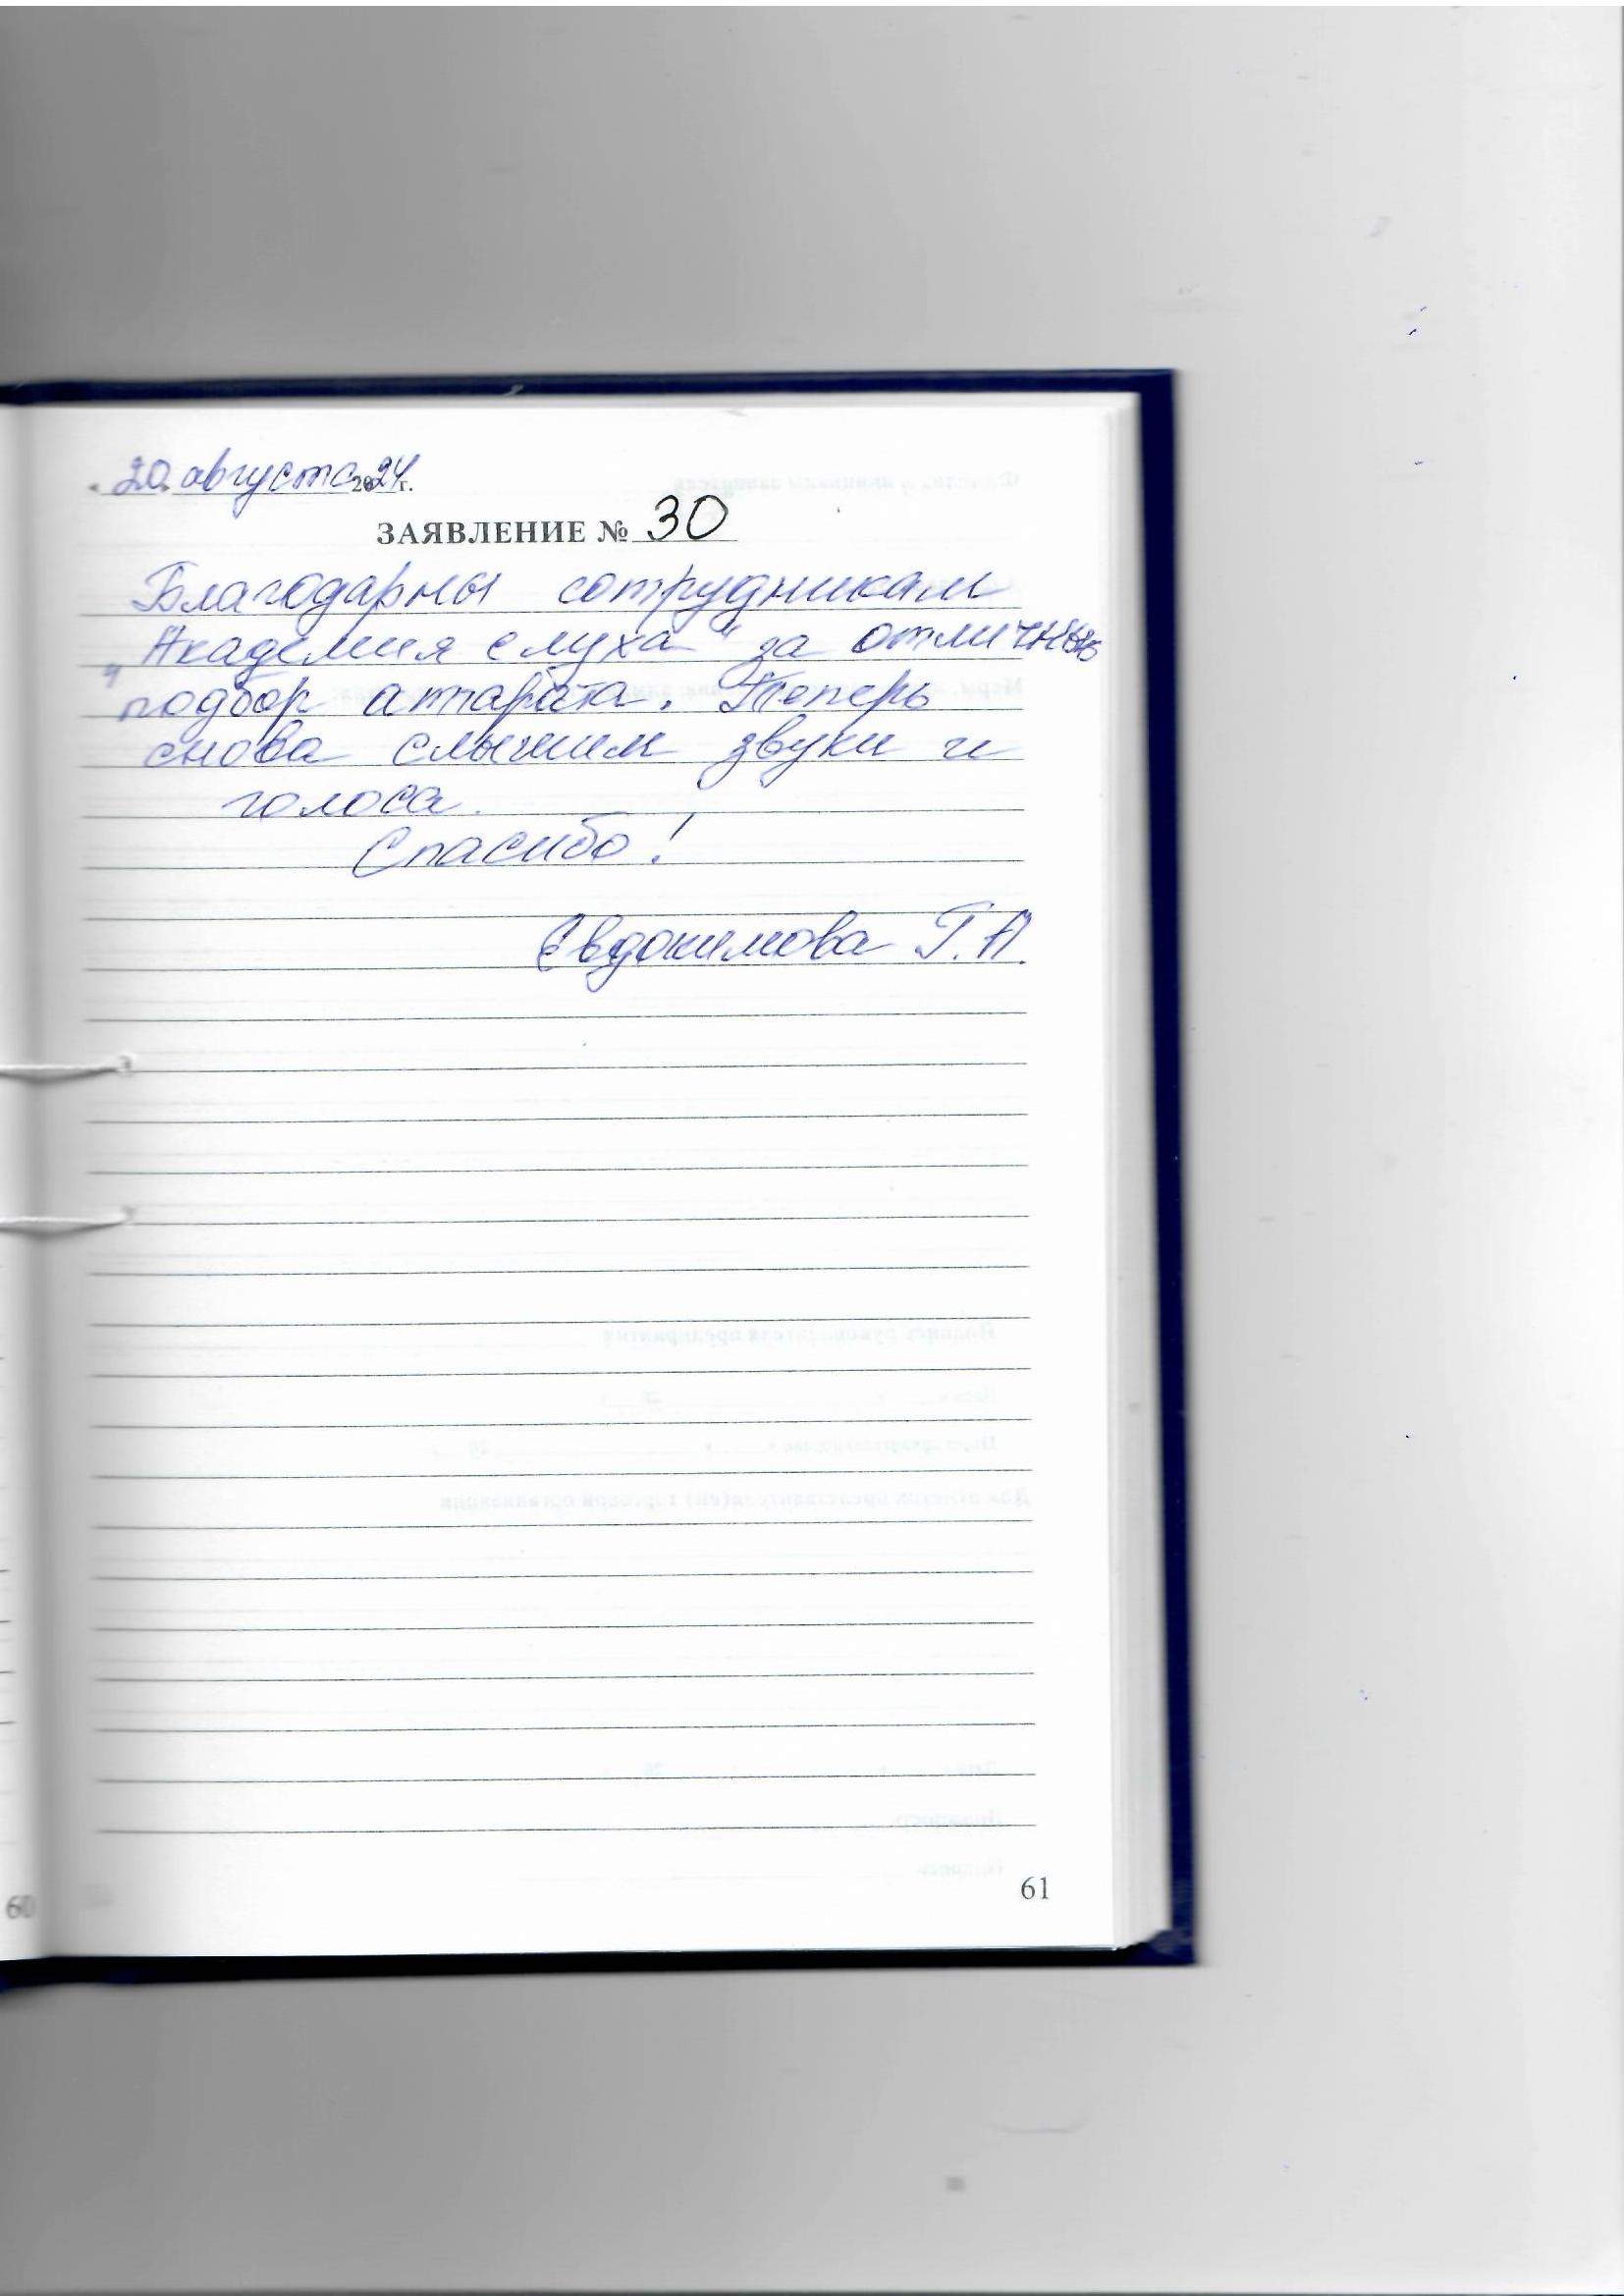 20 августа 2024г.
ЗАЯВЛЕНИЕ № 30
Благодарны сотрудникам
„Академия слуха" за отличный
подбор аппарата. Теперь
снова слышим звуки и
голоса.
Спасибо!
Евдокимова Г.А.
60
61